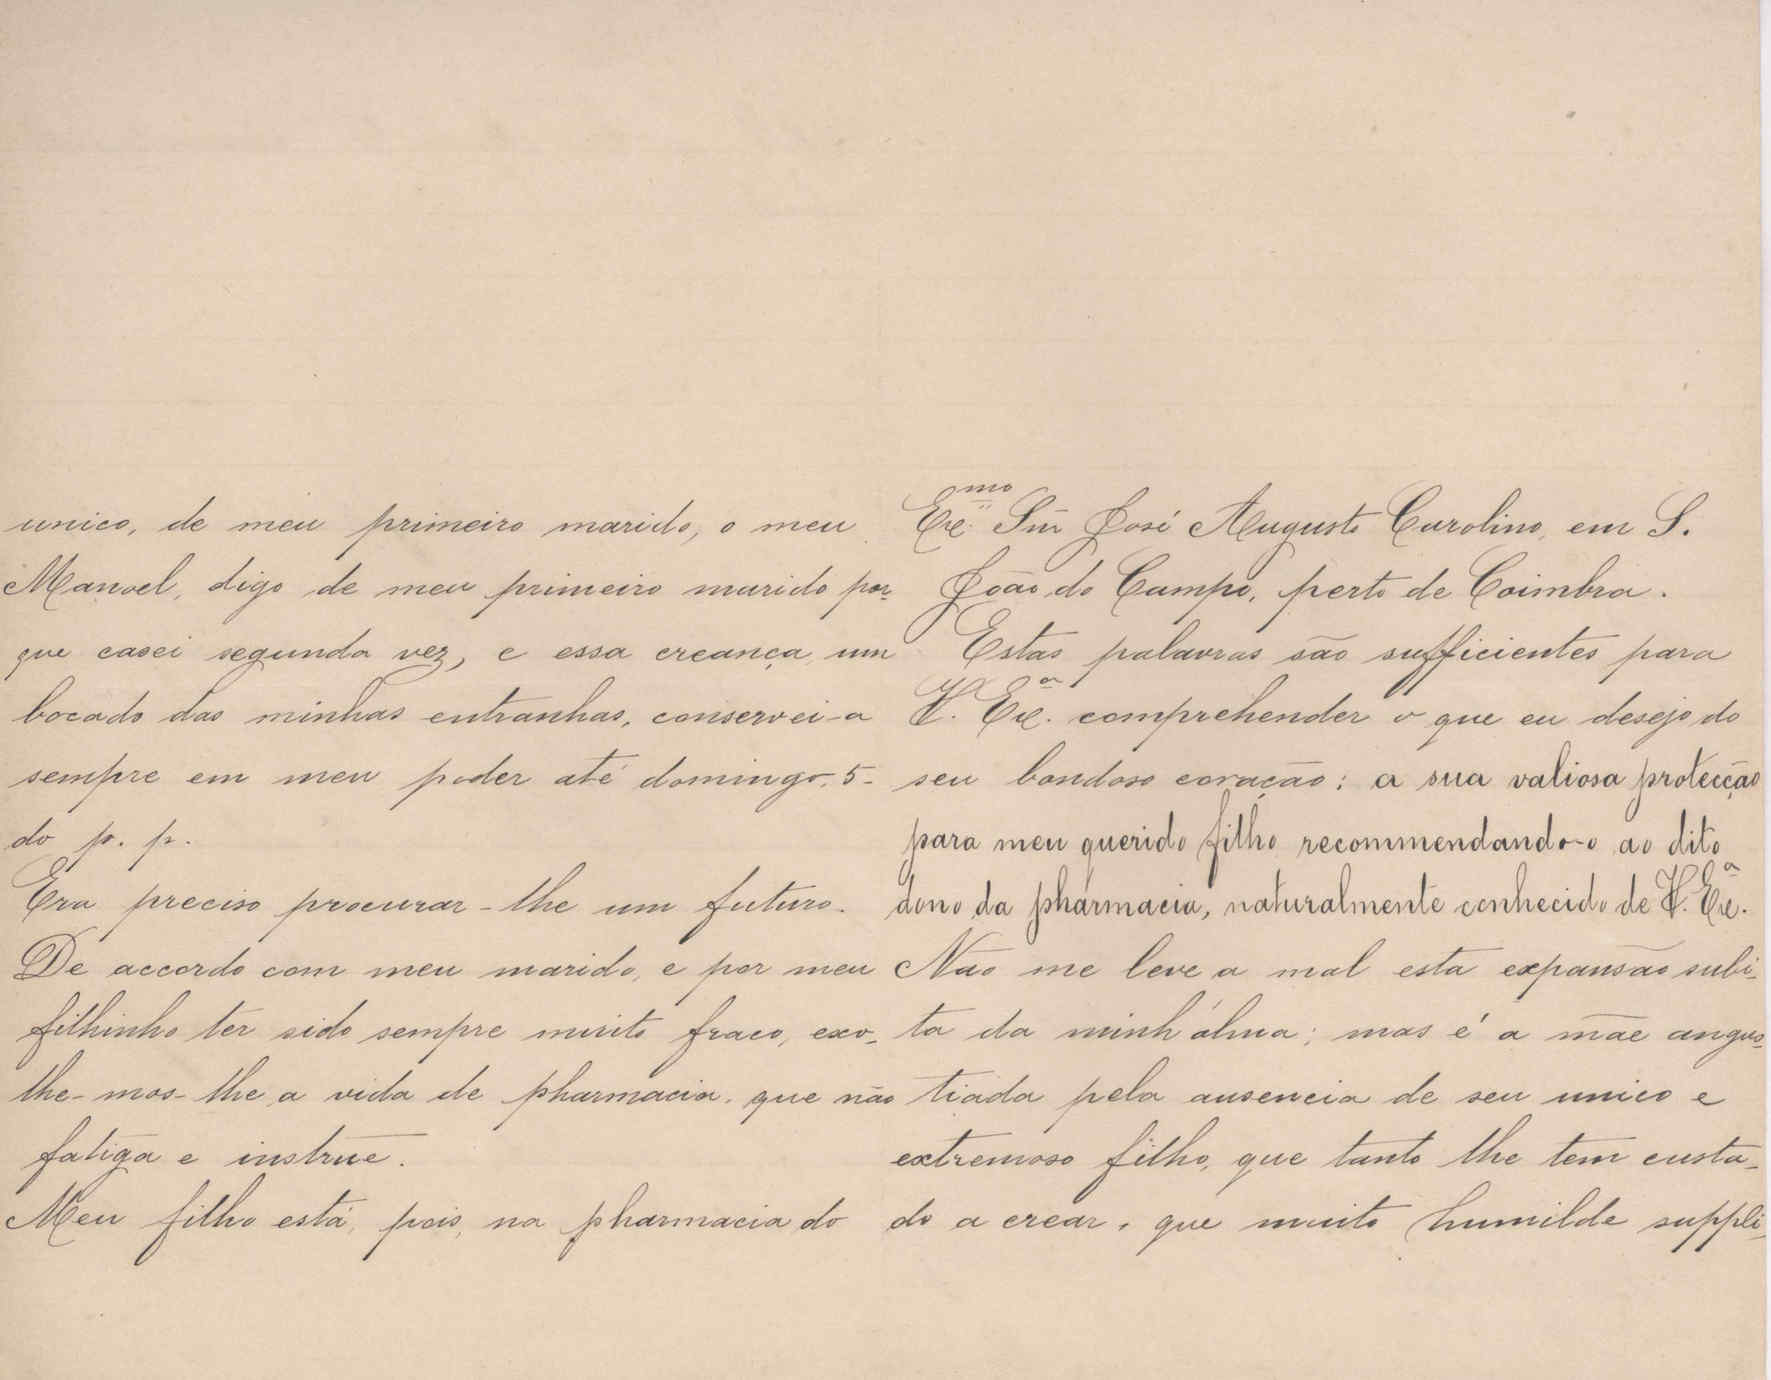 unico, de meu primeiro marido, o meu
Manoel, digo de meu primeiro marido por-
que casei segunda vez, e essa creança, um
bocado das minhas entranhas, conservei-a
sempre em meu poder até domingo, 5-
do p. p.
Era preciso procurar-lhe um futuro.
De accordo com meu marido, e por meu
filhinho ter sido sempre muito fraco, exo-
lhe-mos-lhe a vida de pharmacia, que não
fatiga e instrue.
Meu filho está, pois, na pharmacia do
Exc.mo Snr José Augusto Carolino, em S.
João do Campo, perto de Coimbra.
Estas palavras são sufficientes para
V. Exc.a comprehender o que eu desejo do
seu bondoso coração: a sua valiosa protecção
para meu querido filho recommendando-o ao dito
dono da pharmacia, naturalmente conhecido de V. Exc.a
Não me leve a mal esta expansão subi-
ta da minh'alma; mas é a mãe angus-
tiada pela ausencia de seu unico e
extremoso filho, que tanto lhe tem custa-
do a crear, que muito humilde suppli-